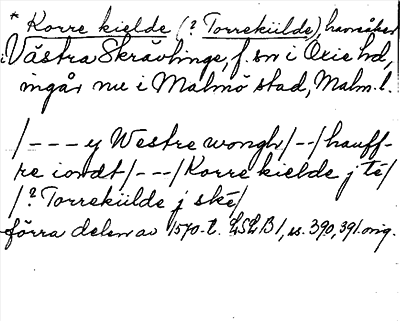 * Korre kielde (? Torrekiilde), havreåker
i Västra Skrävlinge, f. sn i Oxie hd,
ingår nu i Malmö stad, Malm. l.
/ - - - y Westre wongh / - - / hauff-
re iondt / - - - / Korre kielde j té /
/ ? Torrekiilde j ské /
förra delen av 1570-t. LSLB 1, ss. 390, 391. orig.